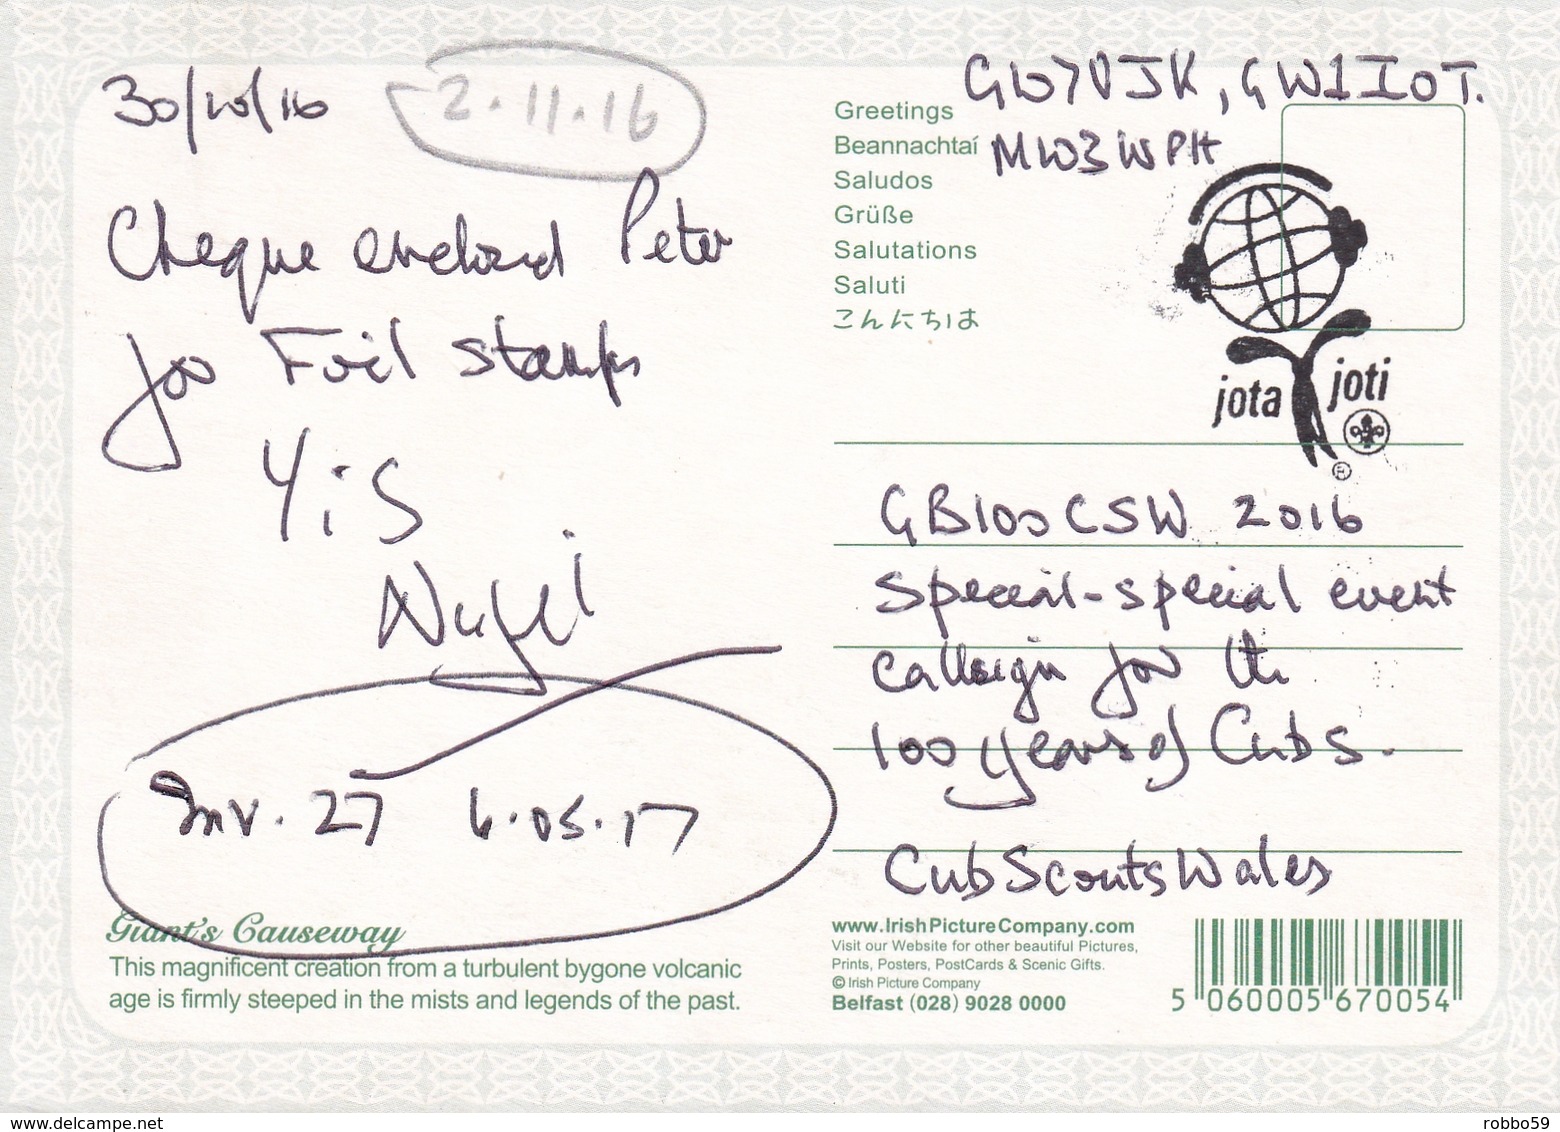 30/10/16
2.11.16
Cheque enclosed Peter
for Foil stamps
YiS
Nigel
Inv. 27 6.05.17
Giant's Causeway
This magnificent creation from a turbulent bygone volcanic
age is firmly steeped in the mists and legends of the past.
GW7VJK, GW1IOT.
MW3WPH
Greetings
Beannachtaí
Saludos
Grüße
Salutations
Saluti
こんにちは
jota joti
®
GB100CSW 2016
Special-special event
callsign for the
100 years of Cubs.
CubScoutsWales
www.IrishPictureCompany.com
Visit our Website for other beautiful Pictures,
Prints, Posters, PostCards & Scenic Gifts.
© Irish Picture Company
Belfast (028) 9028 0000
5 060005 670054
www.delcampe.net
robbo59